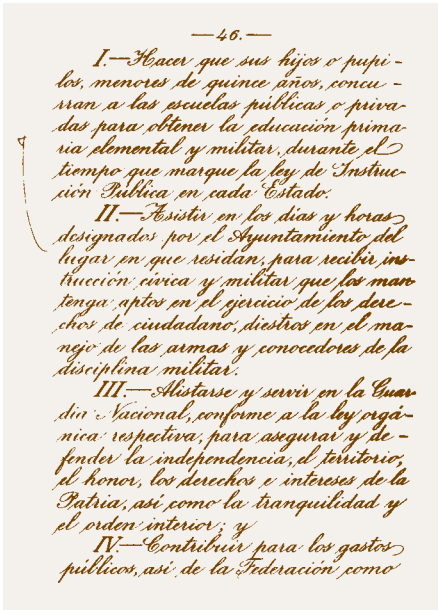 —46.—
I.—Hacer que sus hijos o pupi-
los, menores de quince años, concu-
rran a las escuelas públicas o priva-
das para obtener la educación prima-
ria elemental y militar, durante el
tiempo que marque la ley de Instruc-
ción Pública en cada Estado.
II.—Asistir en los días y horas
designados por el Ayuntamiento del
lugar en que residan, para recibir ins-
trucción cívica y militar que los man-
tenga aptos en el ejercicio de los dere-
chos de ciudadano, diestros en el ma-
nejo de las armas y conocedores de la
disciplina militar.
III.—Alistarse y servir en la Guar-
dia Nacional, conforme a la ley orgá-
nica respectiva, para asegurar y de-
fender la independencia, el territorio,
el honor, los derechos e intereses de la
Patria, así como la tranquilidad y
el orden interior; y
IV.—Contribuir para los gastos
públicos, así de la Federación como